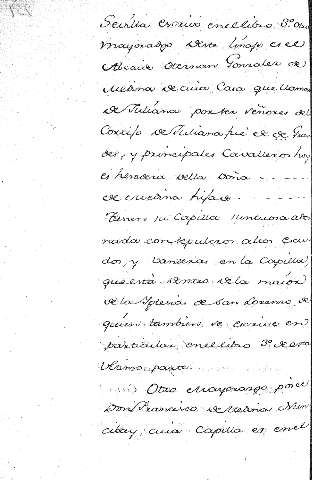 Sevilla escrivo en el libro 3º. Otro
mayorazgo deste linage es el
Alcaide Hernan Gonzalez de
Medina de cuia Casa que llaman
de Juliana por ser señores del
Cortijo de Juliana fue de Gran
des, y principales Cavalleros hoy
es heredera della Doña
de medina hija de
Tienen su Capilla suntuosa ador
nada con sepulcros altos escu
dos, y banderas en la Capilla
que está dentro de la maior
de la Yglesia de San Lorenzo de
quien tambien se escrive en
particular, en el libro 3º de esta
ma parte.
Otro Mayorazgo posee
Don Francisco de Medina Nun
cibay, cuia Capilla es en el